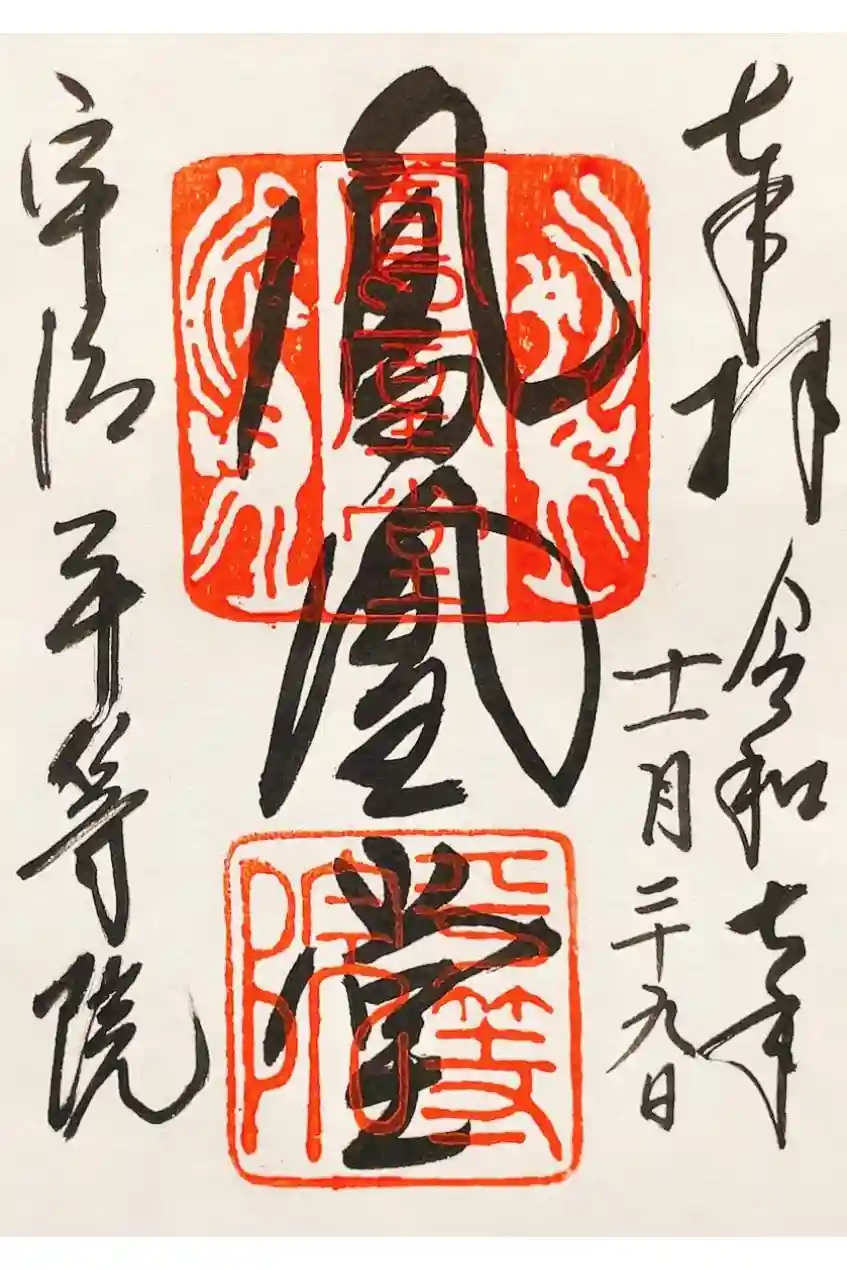 奉拝 令和七年
十一月二十九日
鳳凰堂
鳳凰堂
平等院
宇治 平等院